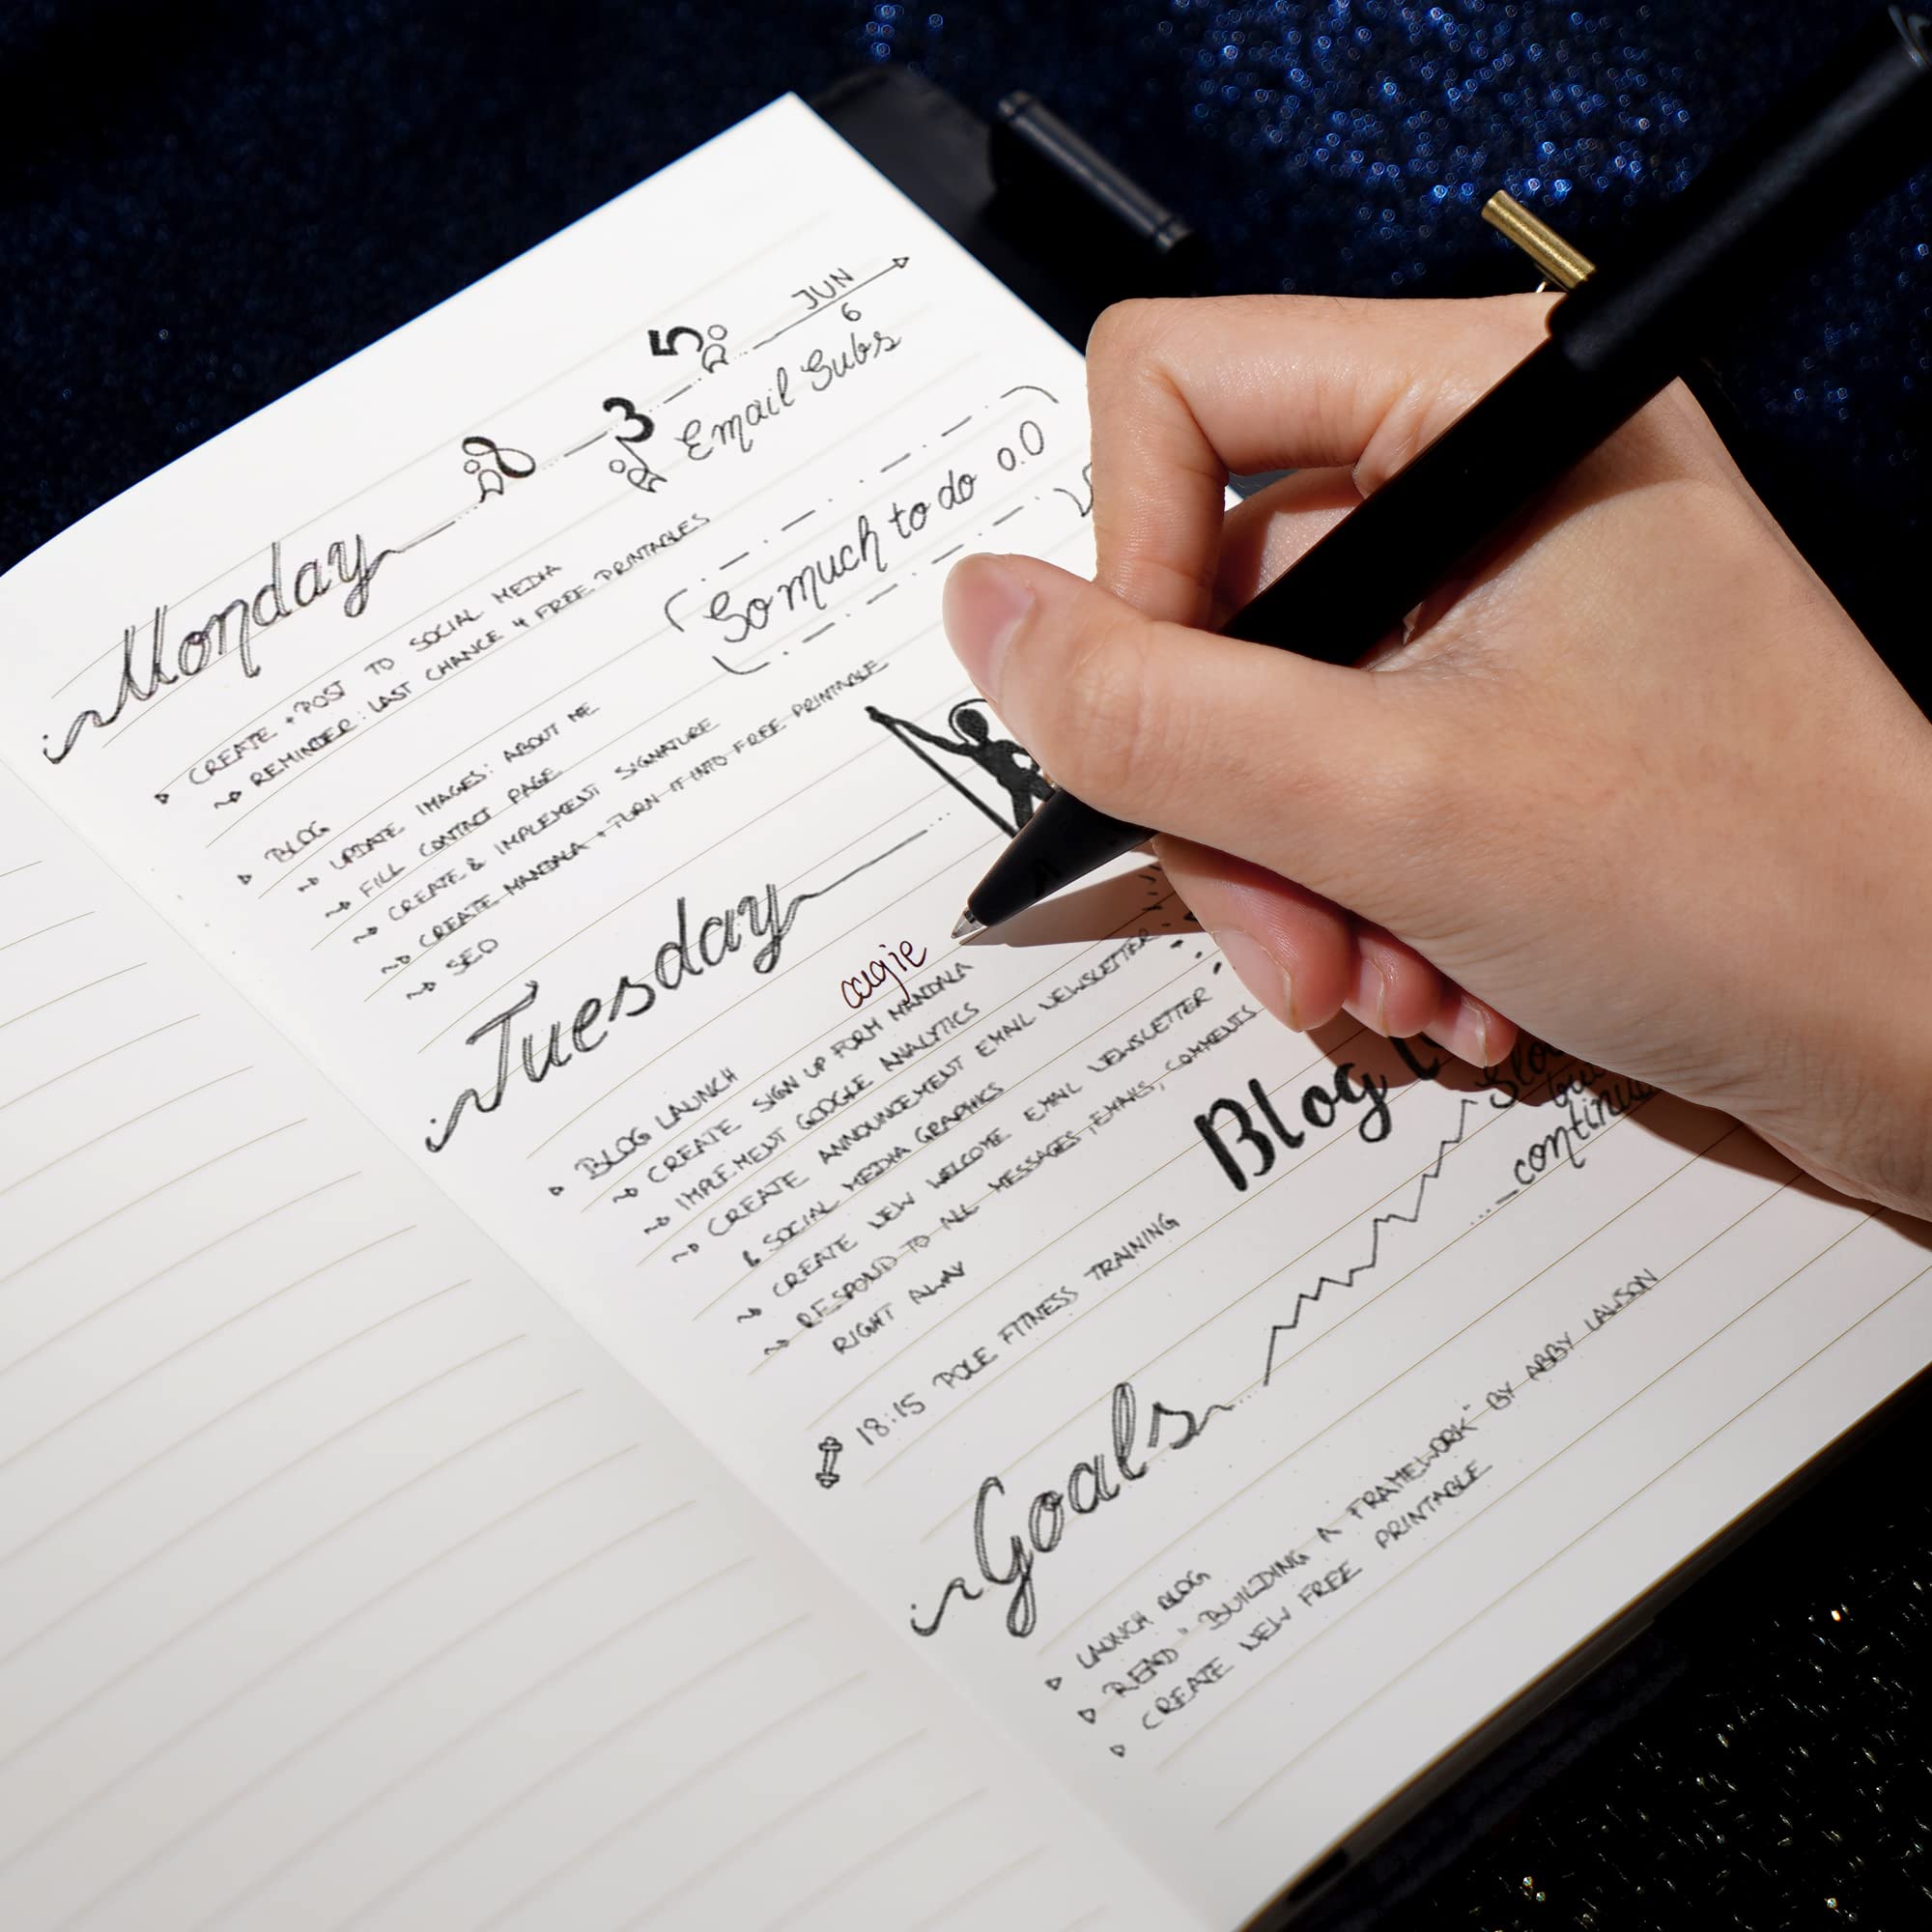 Monday
8 3 5 JUN 6
Email Subs
▷ CREATE + POST TO SOCIAL MEDIA
~▷ REMINDER: LAST CHANCE 4 FREE PRINTABLES
So much to do 0.0
▷ BLOG
~▷ UPDATE IMAGES: ABOUT ME
~▷ FILL CONTACT PAGE
~▷ CREATE & IMPLEMENT SIGNATURE
~▷ CREATE MANDALA + TURN IT INTO FREE PRINTABLE
~▷ SEO
Tuesday
augie
▷ BLOG LAUNCH
~▷ CREATE SIGN UP FORM MANDALA
~▷ IMPLEMENT GOOGLE ANALYTICS
~▷ CREATE ANNOUNCEMENT EMAIL NEWSLETTER
& SOCIAL MEDIA GRAPHICS
~▷ CREATE NEW WELCOME EMAIL NEWSLETTER
~▷ RESPOND TO ALL MESSAGES, EMAILS, COMMENTS
RIGHT AWAY
18:15 POLE FITNESS TRAINING
Blog
... continu
Goals
▷ LAUNCH BLOG
▷ READ "BUILDING A FRAMEWORK" BY ABBY LAWSON
▷ CREATE NEW FREE PRINTABLE